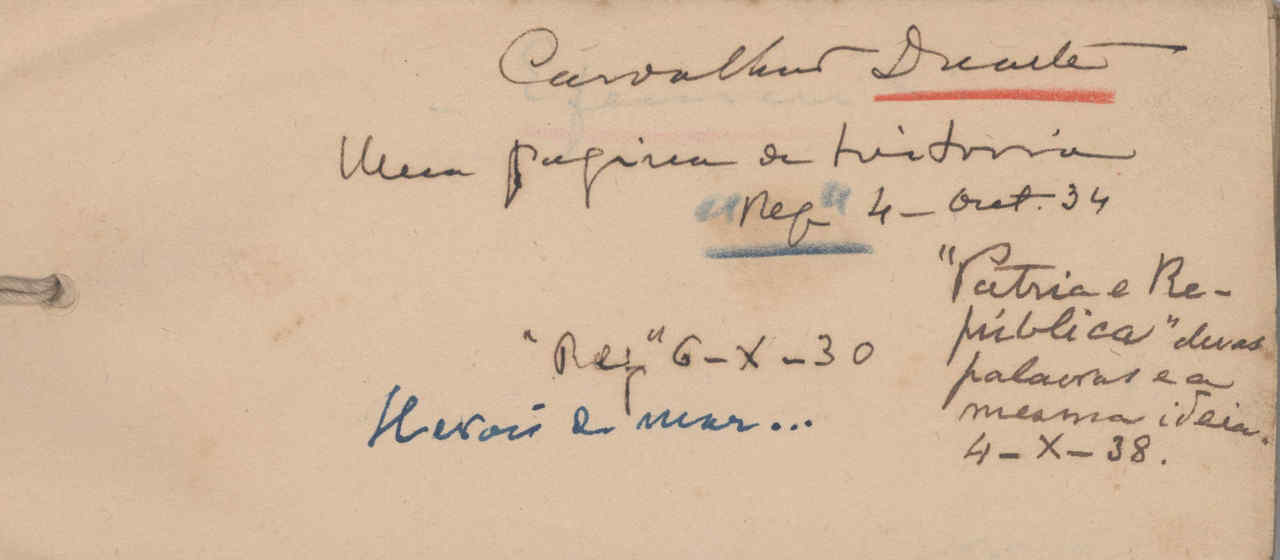 Carvalhao Duarte
Uma pagina de historia
"Rep" 4 - Out. 34
"Rep" 6 - X - 30
Herois do mar...
"Patria e Re-
pública" duas
palavras e a
mesma ideia.
4 - X - 38.